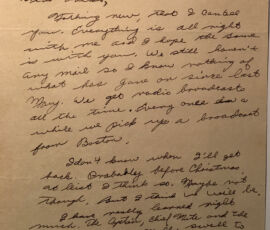 Nothing new, that I can tell
you. Everything is all right
with me and I hope the same
is with you. We still haven't
any mail so I know nothing of
what has gone on since last
May. We get radio broadcasts
all the time. Every once in a
while we pick up a broadcast
from Boston.
I don't know when I'll get
back. Probably before Christmas
at least I think so. Maybe not
though. But I think we will be.
I have really learned
much. The Captain, Chief Mate and the
swell to